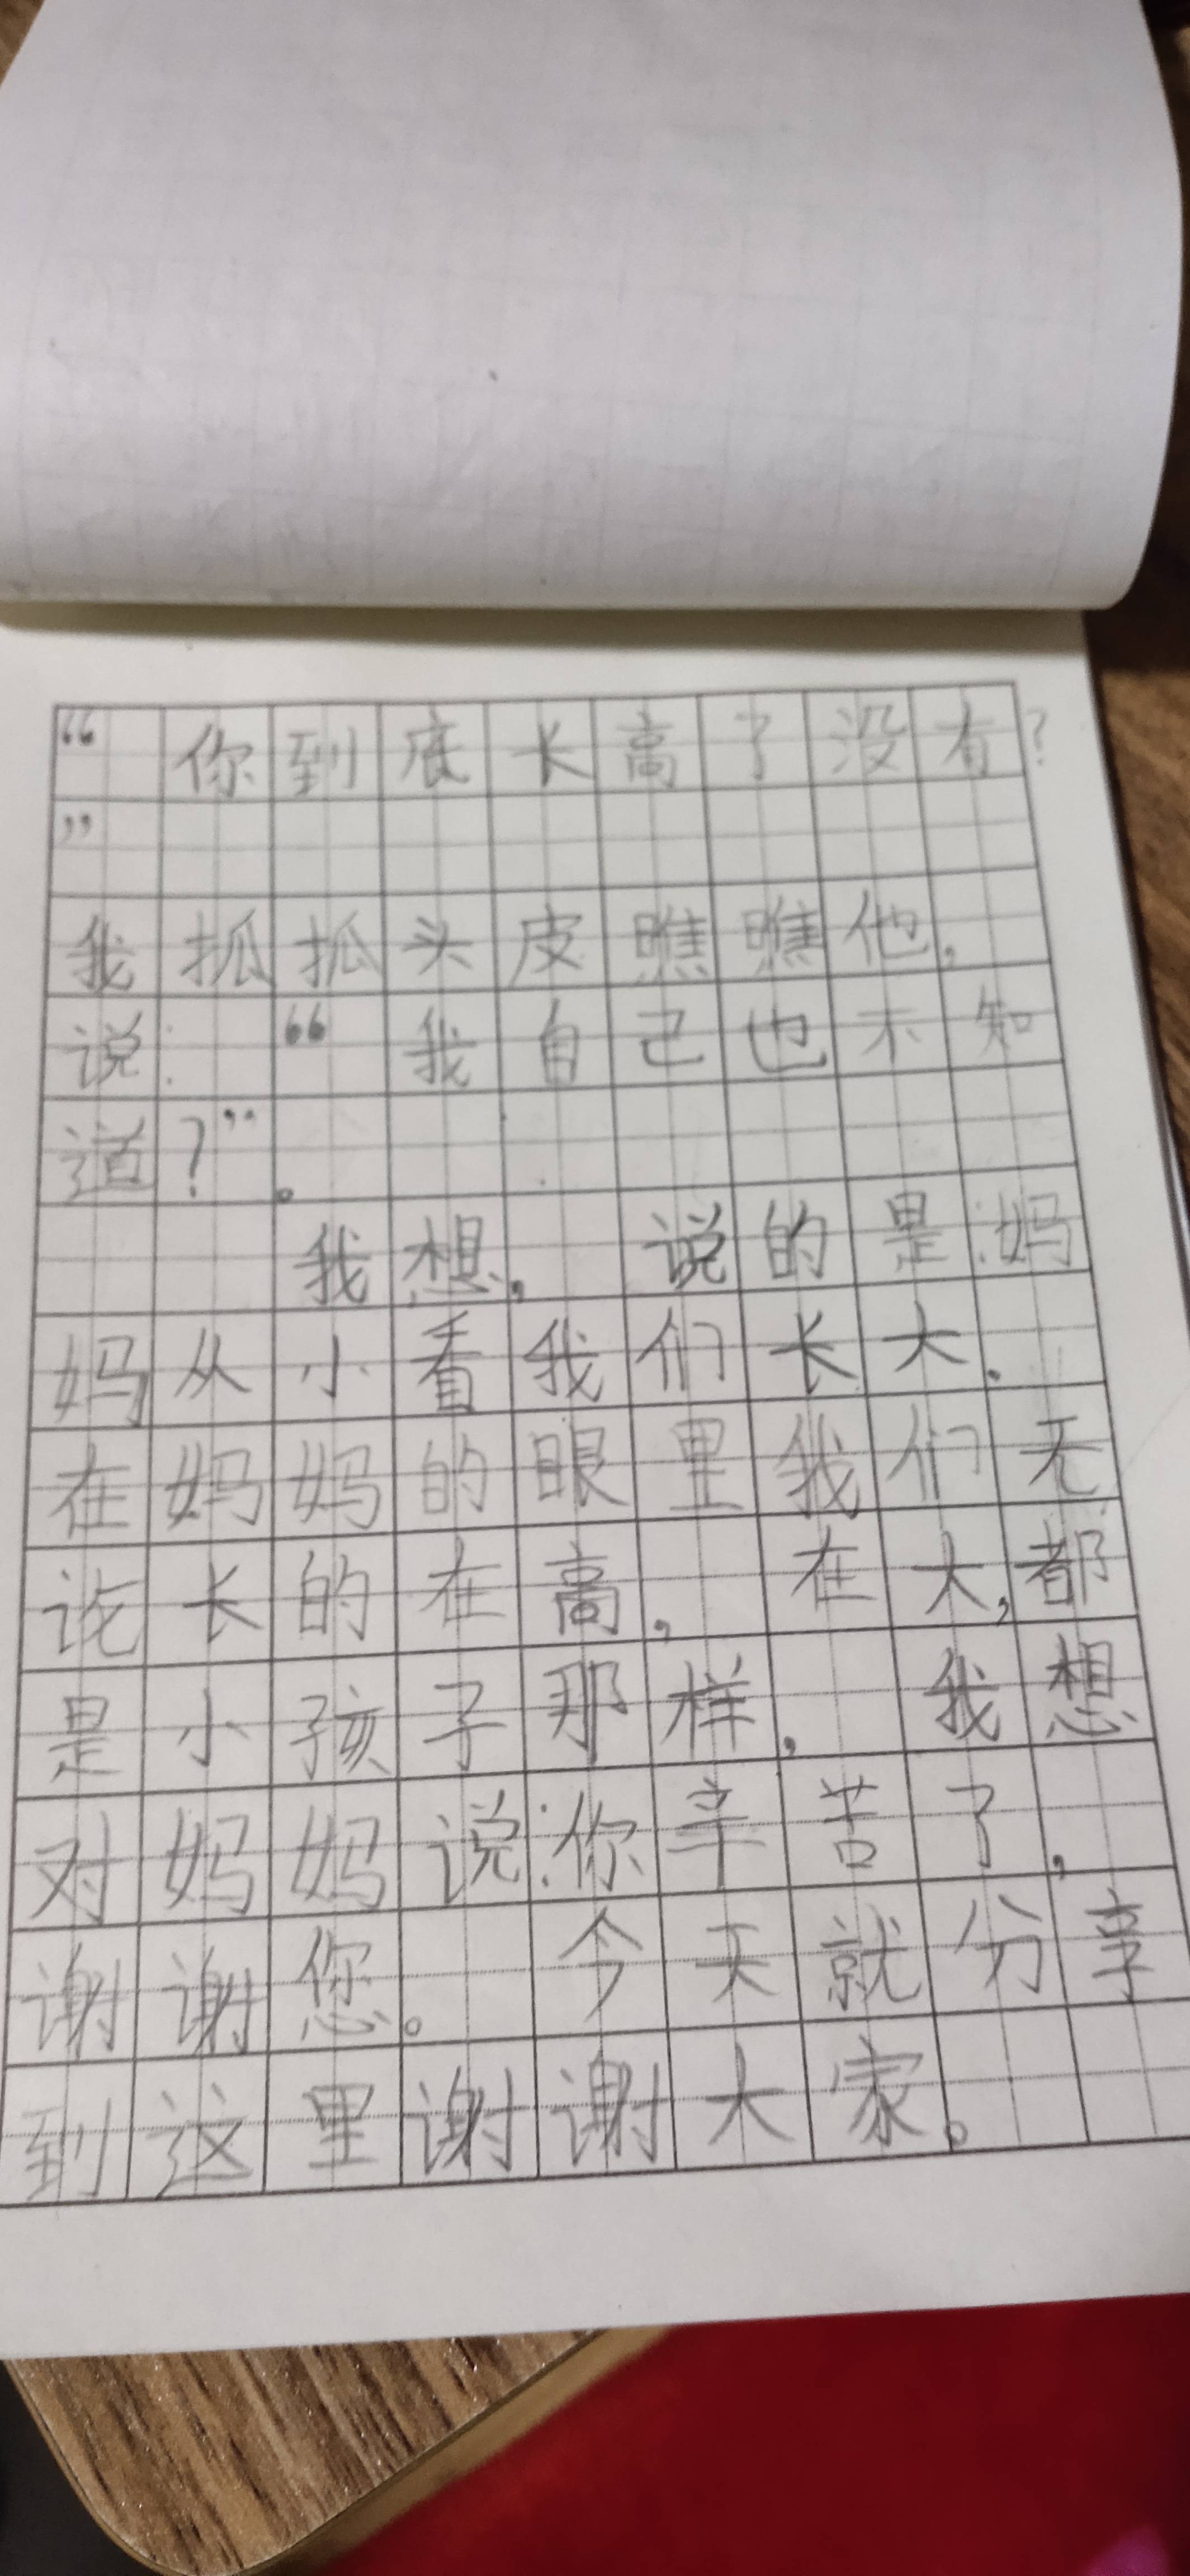 “你到底长高了没有?
”
我抓抓头皮瞧瞧他,
说:“我自己也不知
道?”。
我想,说的是妈
妈从小看我们长大.
在妈妈的眼里我们无
论长的在高,在大,都
是小孩子那样,我想
对妈妈说:你辛苦了,
谢谢您。今天就分享
到这里谢谢大家。